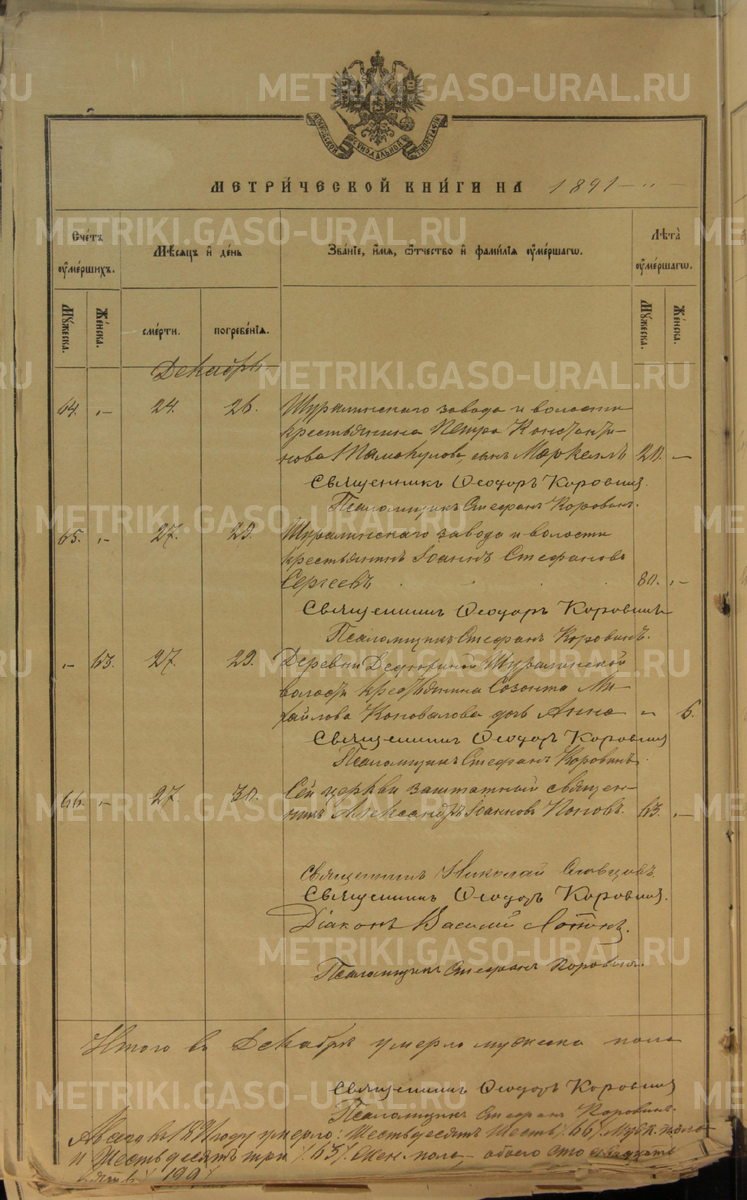 МЕТРИ́ЧЕСКОЙ КНИ́ГИ НА 1891
Сче́тъ оуме́ршихъ.
Мѣ́сяцъ и де́нь
Зва́нїе, и́мя, ѻ́тчество и фами́лїя оуме́ршагѡ.
Лѣта̀ оуме́ршагѡ.
Му́жеска.
Же́нска.
сме́рти.
погребе́нїя.
Му́жеска.
Же́нска.
Декабрь
64. „ 24. 26. Шуралинскаго завода и волости
крестьянина Петра Константи-
нова сынъ Маркеллъ
Священникъ Ѳеодоръ Коровинъ.
Псаломщикъ Стефанъ Коровинъ.
65. „ 27. 29. Шуралинскаго завода и волости
крестьянинъ Іоаннъ Стефановъ
Сергеевъ 80. „
Священникъ Ѳеодоръ Коровинъ
Псаломщикъ Стефанъ Коровинъ.
„ 63. 27. 29. Деревни Шуралинской
волости крестьянина Созонта Ми-
хайлова Коновалова дочь Анна „ 6.
Священникъ Ѳеодоръ Коровинъ
Псаломщикъ Стефанъ Коровинъ.
66. „ 27. 30. Сей церкви заштатный священ-
никъ Александръ Іоанновъ Поповъ. 63. „
Священникъ Николай Словцовъ.
Священникъ Ѳеодоръ Коровинъ.
Діаконъ Василій
Псаломщикъ Стефанъ Коровинъ.
Итого въ Декабрѣ умерло мужеска пола
Священникъ Ѳеодоръ Коровинъ
Псаломщикъ Стефанъ Коровинъ.
А всего въ 1891 году умерло: Шестьдесятъ шесть /66/ муж. пола
и шестьдесятъ три /63/ жен. пола, обоего сто двадцать
METRIKI.GASO-URAL.RU